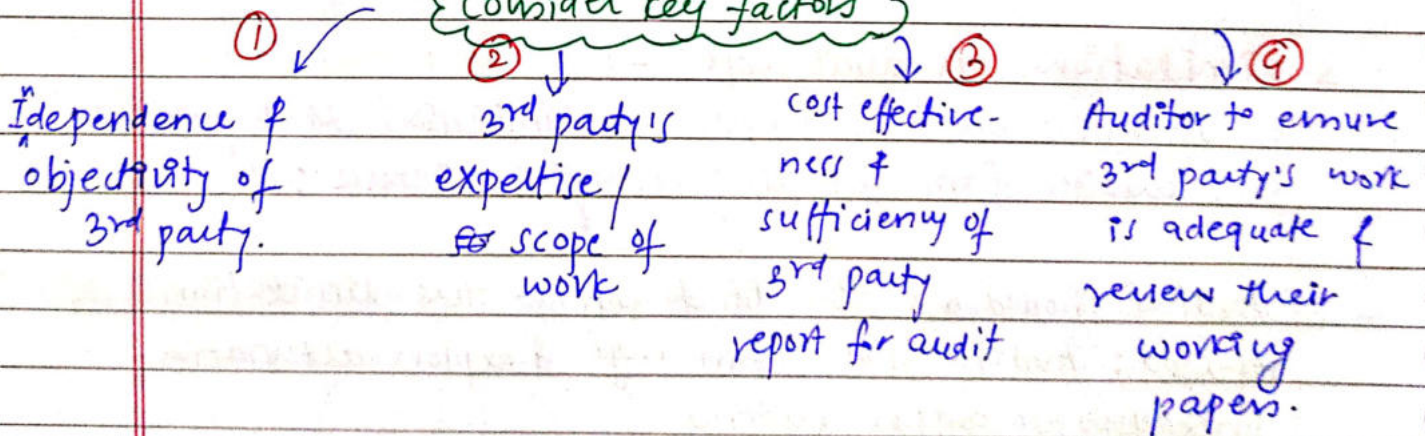 Consider key factors
① ② ③ ④
Independence &
objectivity of
3rd party.
3rd party's
expertise /
scope of
work
cost effective-
ness &
sufficiency of
3rd party
report for audit
Auditor to ensure
3rd party's work
is adequate &
review their
working
papers.